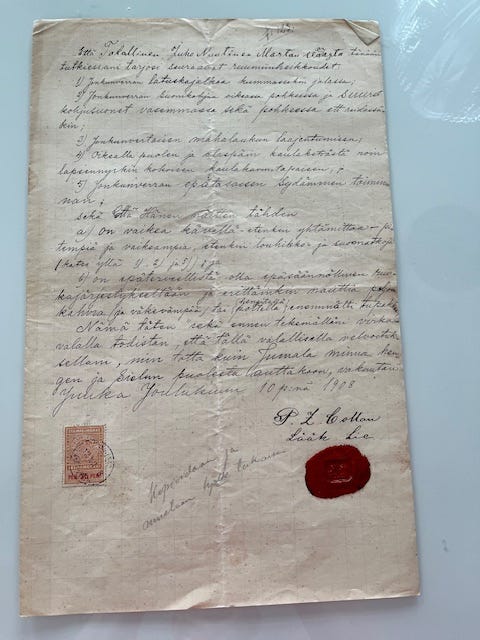 Että Talallinen Juho Nuutinen Martan tänään
tutkiessani tarjosi seuraavat ruumiinheikkoudet:
1) Jonkunverran latuskajalkaa kummassakin jalassa;
2) Jonkunverran suonikohjuja oikeassa pohkeessa ja suuret
kohjusuonet vasemmassa sekä pohkeessa että
kin;
3) Jonkunvertaisen mahalaukun laajentumisen;
4) Oikealla puolen ja alaspäin kaulaketästä noin
lapsennyrkin kokoisen kaulakasvantapaisen;
5) Jonkunverran epätasasen sydämmen toimin-
nan;
sekä Että Hänen näitten tähden
a) on vaikea kävellä etenkin yhtämittaa
tempiä ja vaikeampia, etenkin louhikko ja suomatkoja
(katso yllä 1), 2) ja 3)) ja
b) on epäterveellistä olla epäsäännöllisen ruo-
kajärjestykseltään ja erittäinkin nauttia paljon
kahvia (ja väkevämpää) tai poltella
Nämä täten sekä ennen tekemälläni virka-
valalla todistan, että tällä valallisella velvoituk-
sellani, niin totta kuin Jumala minua hen-
gen ja sielun puolesta auttakoon, vakuutan
Joulukuun 10 p:nä 1908
P. Z. Collan
Lääk Lic
PEN 25 PEN
Kopioidaan ja
annetaan